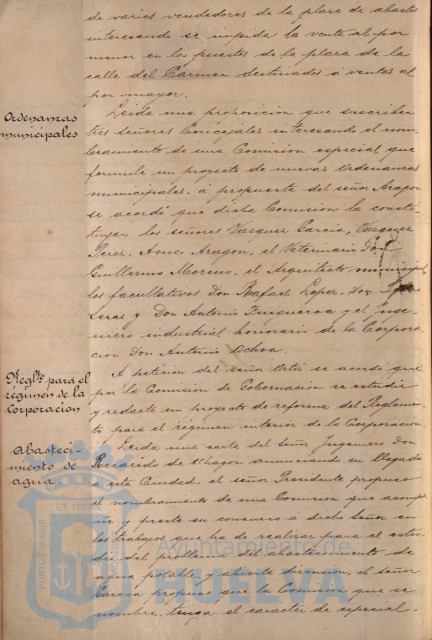 de varios vendedores de la plaza de abastos
interesando se impida la venta al por
menor en los puestos de la plaza de la
calle del Carmen destinados a ventas al
por mayor.
Ordenanzas
municipales
Leida una proposicion que suscriben
tres señores Concejales interesando el nom-
bramiento de una Comision especial que
formule un proyecto de nuevas Ordenanzas
municipales, a propuesta del señor Aragon
se acordó que dicha Comision la consti-
tuyan los señores Vazquez Garcia, Vazquez
Perez, Amo, Aragon, el Veterinario Don
Guillermo Moreno, el Arquitecto municipal
los facultativos Don Rafael Lopez, Don
y Don Antonio Figueroa y el Inge-
niero industrial honorario de la Corpora-
cion Don Antonio Ochoa.
Regltº para el
régimen de la
Corporacion
A peticion del señor Ortiz se acordó que
por la Comision de Gobernacion se estudie
y redacte un proyecto de reforma del Reglamen-
to para el régimen interior de la Corporacion.
Abasteci-
miento de
agua
Leida una carta del señor Ingeniero Don
Recaredo de Uhagon anunciando su llegada
a esta Ciudad, el señor Presidente propuso
el nombramiento de una Comision que acomp-
añe y preste su concurso a dicho señor en
los trabajos que ha de realizar para el estu-
dio del problema del abastecimiento de
agua potable, y abierta discusion, el señor
Garcia propuso que la Comision que se
nombre, tenga el caracter de especial.
PORTUS MARIS ET TERRAE CUSTODIA
Ayuntamiento de
HUELVA